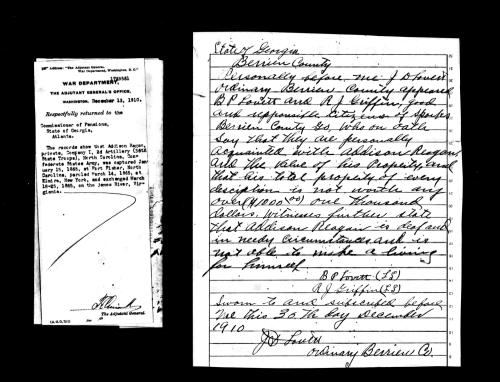 Address: "The Adjutant General,
War Department, Washington, D. C."
1739561
WAR DEPARTMENT,
THE ADJUTANT GENERAL'S OFFICE,
WASHINGTON, December 13, 1910.
Respectfully returned to the
Commissioner of Pensions,
State of Georgia,
Atlanta.
The records show that Addison
private, Company I, 2d Artillery (36th
State Troops), North Carolina, Con-
federate States Army, was captured Janu-
ary 15, 1865, at Fort Fisher, North
Carolina, paroled March 14, 1865, at
Elmira, New York, and exchanged March
18-21, 1865, on the James River, Vir-
ginia.
The Adjutant General.
State of Georgia
Berrien County
Personally before me J D Lovett
Ordinary Berrien County appeared
B P Lovitt and R J Griffin, good
and responsible citizens of Sparks
Berrien County Ga, who on oath
say that they are personally
acquainted with Addison Reagan,
and the value of his property and
that his total property of every
desciption is not worth any
over ($1000.00) one thousand
dollars, witness further state
that Addison Reagan is deaf and
in needy circumstances, and is
not able to make a living
for himself
B P Lovitt (LS)
R J Griffin (LS)
Sworn to and subscribed before
me this 30 the day December
1910
J D Lovett
Ordinary Berrien Co.